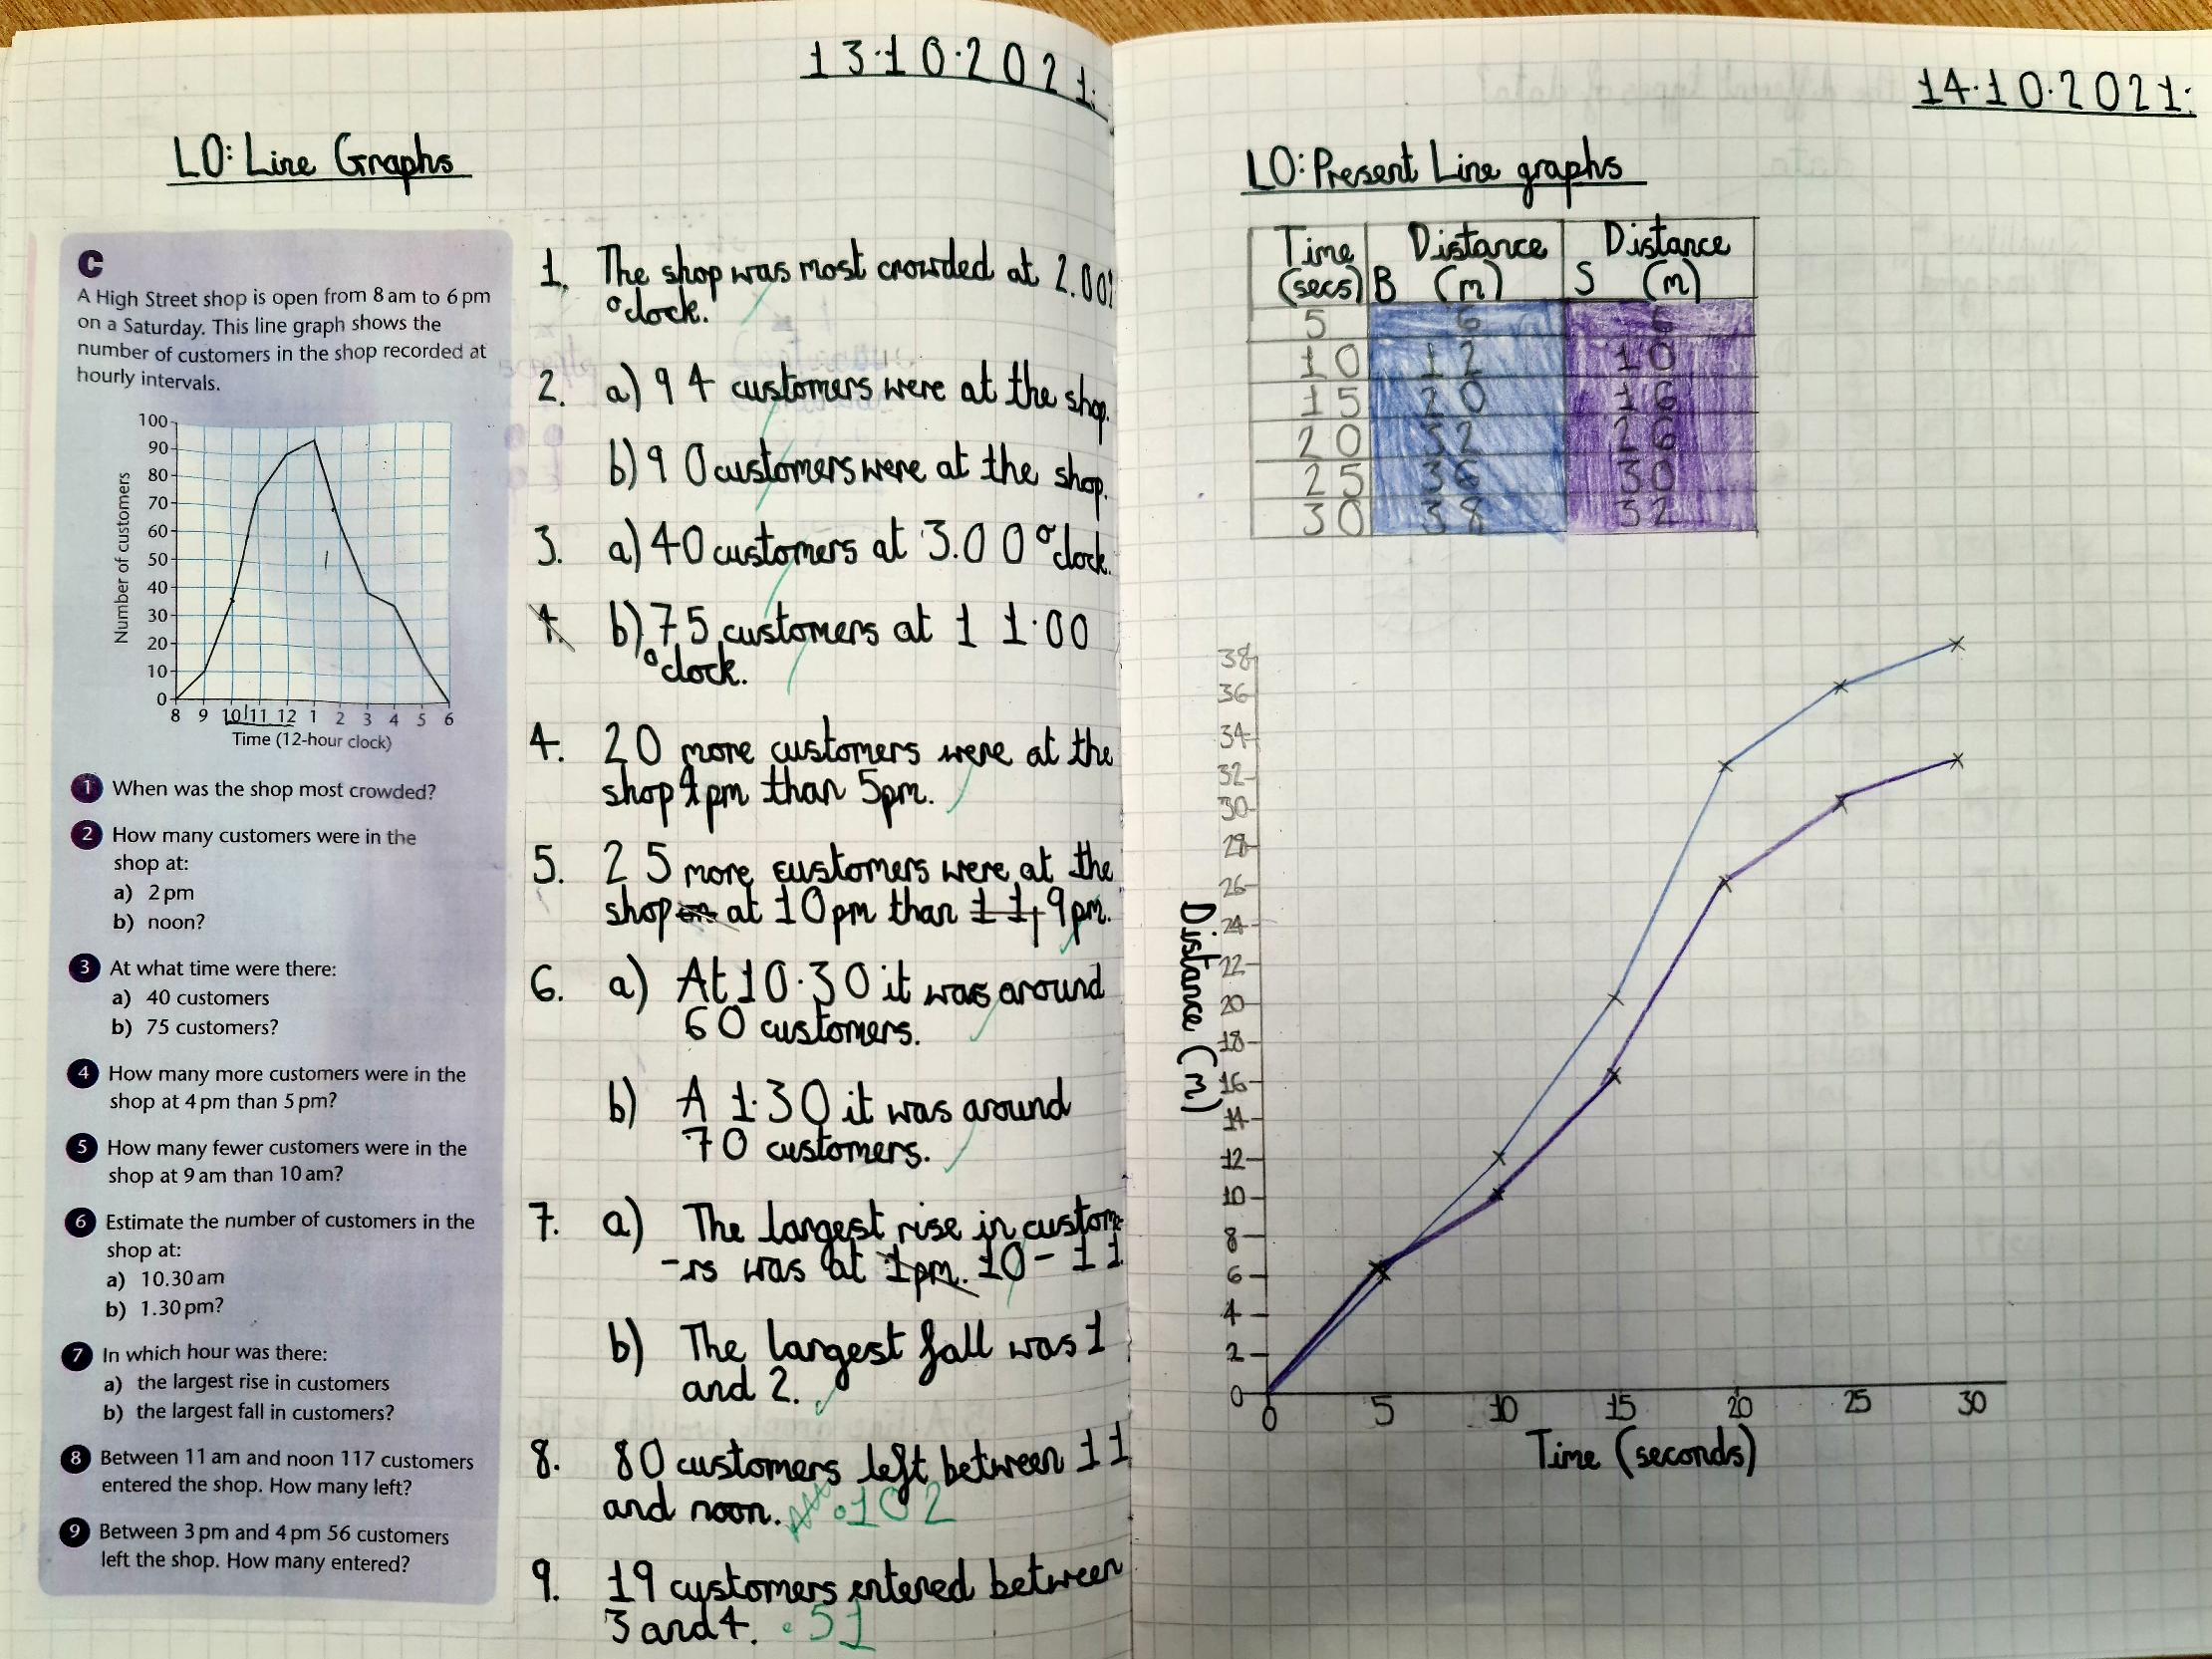 13.10.2021.
LO: Line Graphs
C
A High Street shop is open from 8 am to 6 pm
on a Saturday. This line graph shows the
number of customers in the shop recorded at
hourly intervals.
100
90
80
70
60
50
40
30
20
10
0
Number of customers
8 9 10 11 12 1 2 3 4 5 6
Time (12-hour clock)
1 When was the shop most crowded?
2 How many customers were in the
shop at:
a) 2 pm
b) noon?
3 At what time were there:
a) 40 customers
b) 75 customers?
4 How many more customers were in the
shop at 4 pm than 5 pm?
5 How many fewer customers were in the
shop at 9 am than 10 am?
6 Estimate the number of customers in the
shop at:
a) 10.30 am
b) 1.30 pm?
7 In which hour was there:
a) the largest rise in customers
b) the largest fall in customers?
8 Between 11 am and noon 117 customers
entered the shop. How many left?
9 Between 3 pm and 4 pm 56 customers
left the shop. How many entered?
1. The shop was most crowded at 2.00
o'clock.
2. a) 94 customers were at the shop.
b) 90 customers were at the shop.
3. a) 40 customers at 3.00 o'clock.
4. b) 75 customers at 11.00
o'clock.
4. 20 more customers were at the
shop 4pm than 5pm.
5. 25 more customers were at the
shop at 10pm than 11, 9pm.
6. a) At 10.30 it was around
60 customers.
b) A 1.30 it was around
70 customers.
7. a) The largest rise in custome
-rs was at 1pm. 10-11
b) The largest fall was 1
and 2.
8. 80 customers left between 11
and noon. 102
9. 19 customers entered between
3 and 4. 51
14.10.2021.
LO: Present Line graphs
Time (secs) B Distance (m) S Distance (m)
5 6 6
10 12 10
15 20 16
20 32 26
25 36 30
30 38 32
38
36
34
32
30
28
26
24
22
20
18
16
14
12
10
8
6
4
2
0
Distance (m)
0 5 10 15 20 25 30
Time (seconds)